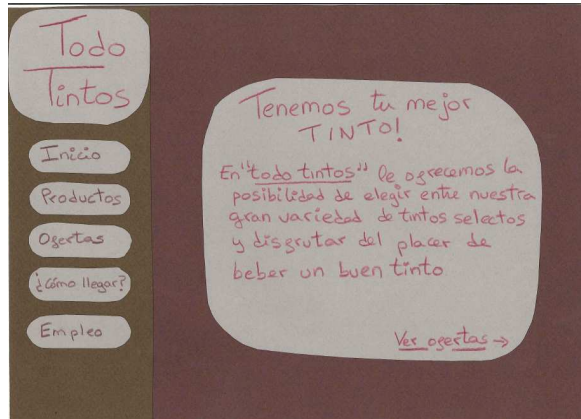 Todo
Tintos
Inicio
Productos
Ofertas
¿Cómo llegar?
Empleo
Tenemos tu mejor
TINTO!
En "todo tintos" le ofrecemos la
posibilidad de elegir entre nuestra
gran variedad de tintos selectos
y disfrutar del placer de
beber un buen tinto
Ver ofertas →